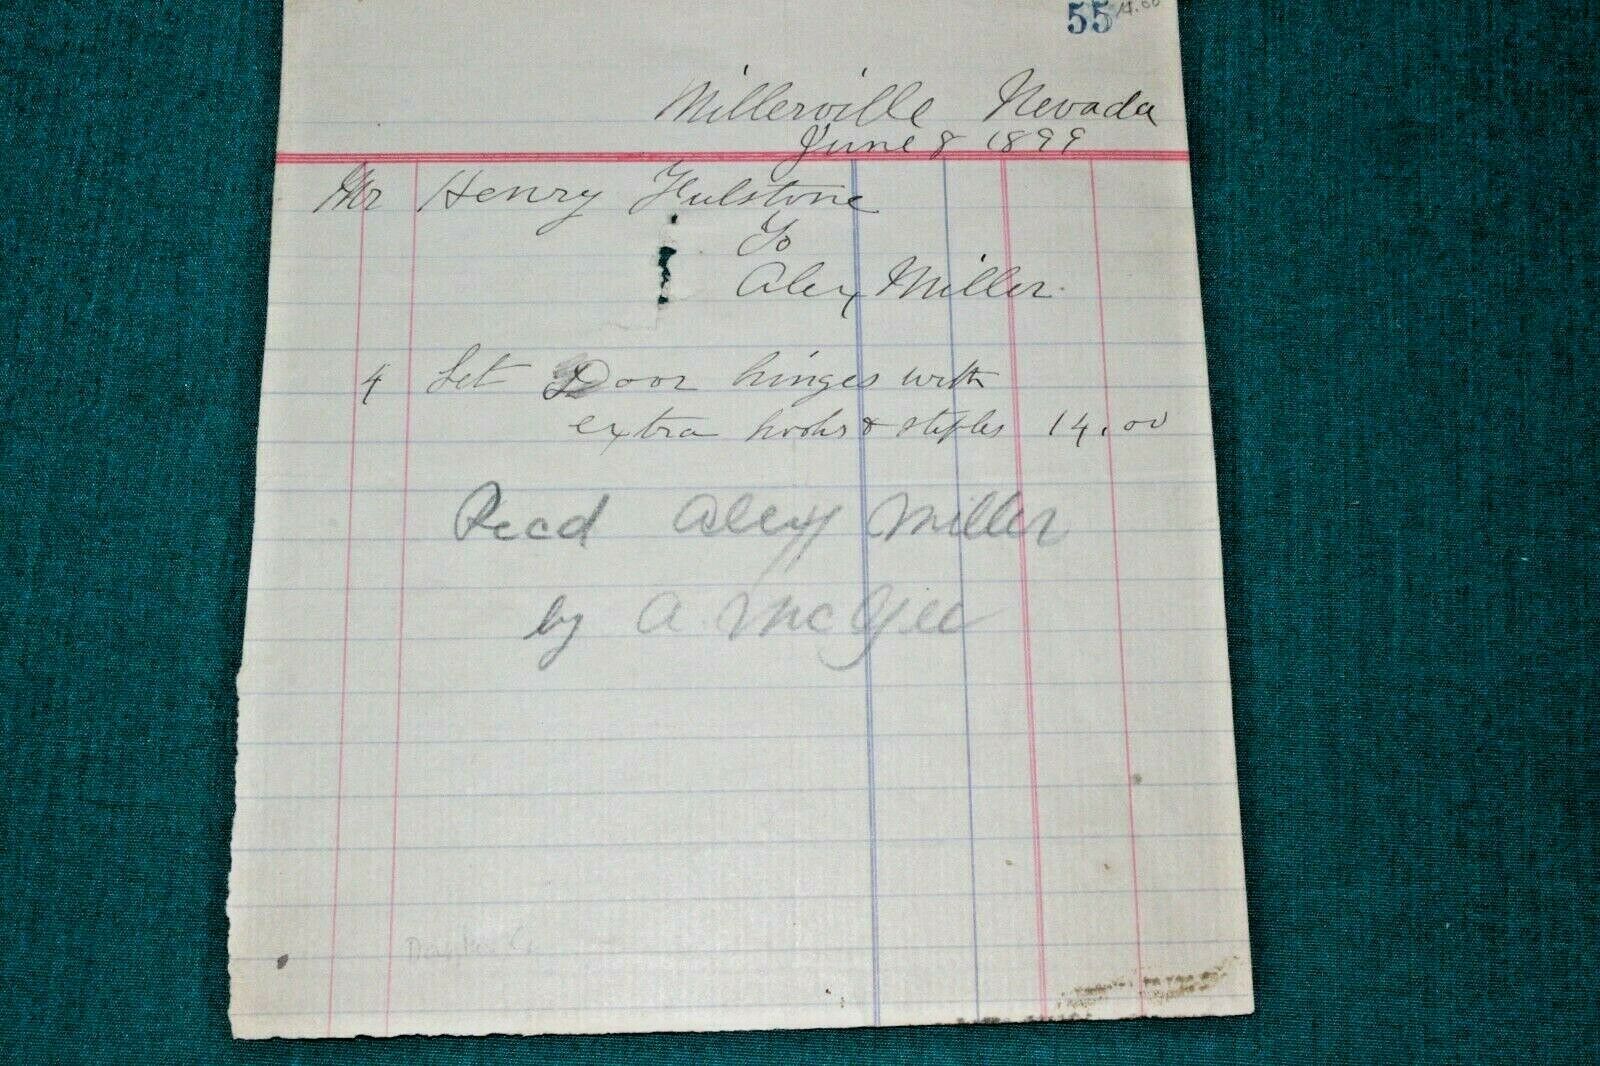 55 14.00
Millerville Nevada
June 8 1899
Mr Henry Fulstone
To
Alex Miller.
4 Set Door hinges with
extra hooks & staples 14.00
Recd Alex Miller
by A. McGee